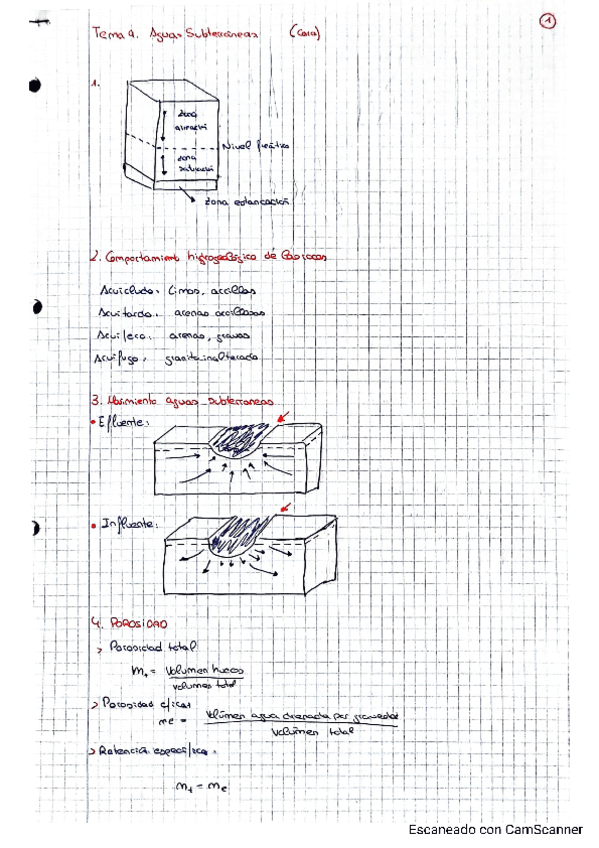 1
Tema 9. Aguas Subterráneas (Cara)
1.
zona aireación
Nivel freático
zona saturación
zona estancación
2. Comportamiento hidrogeológico de las rocas
Acuicludo: limos, arcillas
Acuitardo: arenas arcillosas
Acuífero: arenas, gravas
Acuífugo: granito inalterado
3. Movimiento aguas subterraneas
• Efluente:
• Influente:
4. POROSIDAD
> Porosidad total
mt = Volumen huecos
volumen total
> Porosidad eficaz
me = Volúmen agua drenada por gravedad
Volúmen total
> Retencia específica:
mt - me
Escaneado con CamScanner